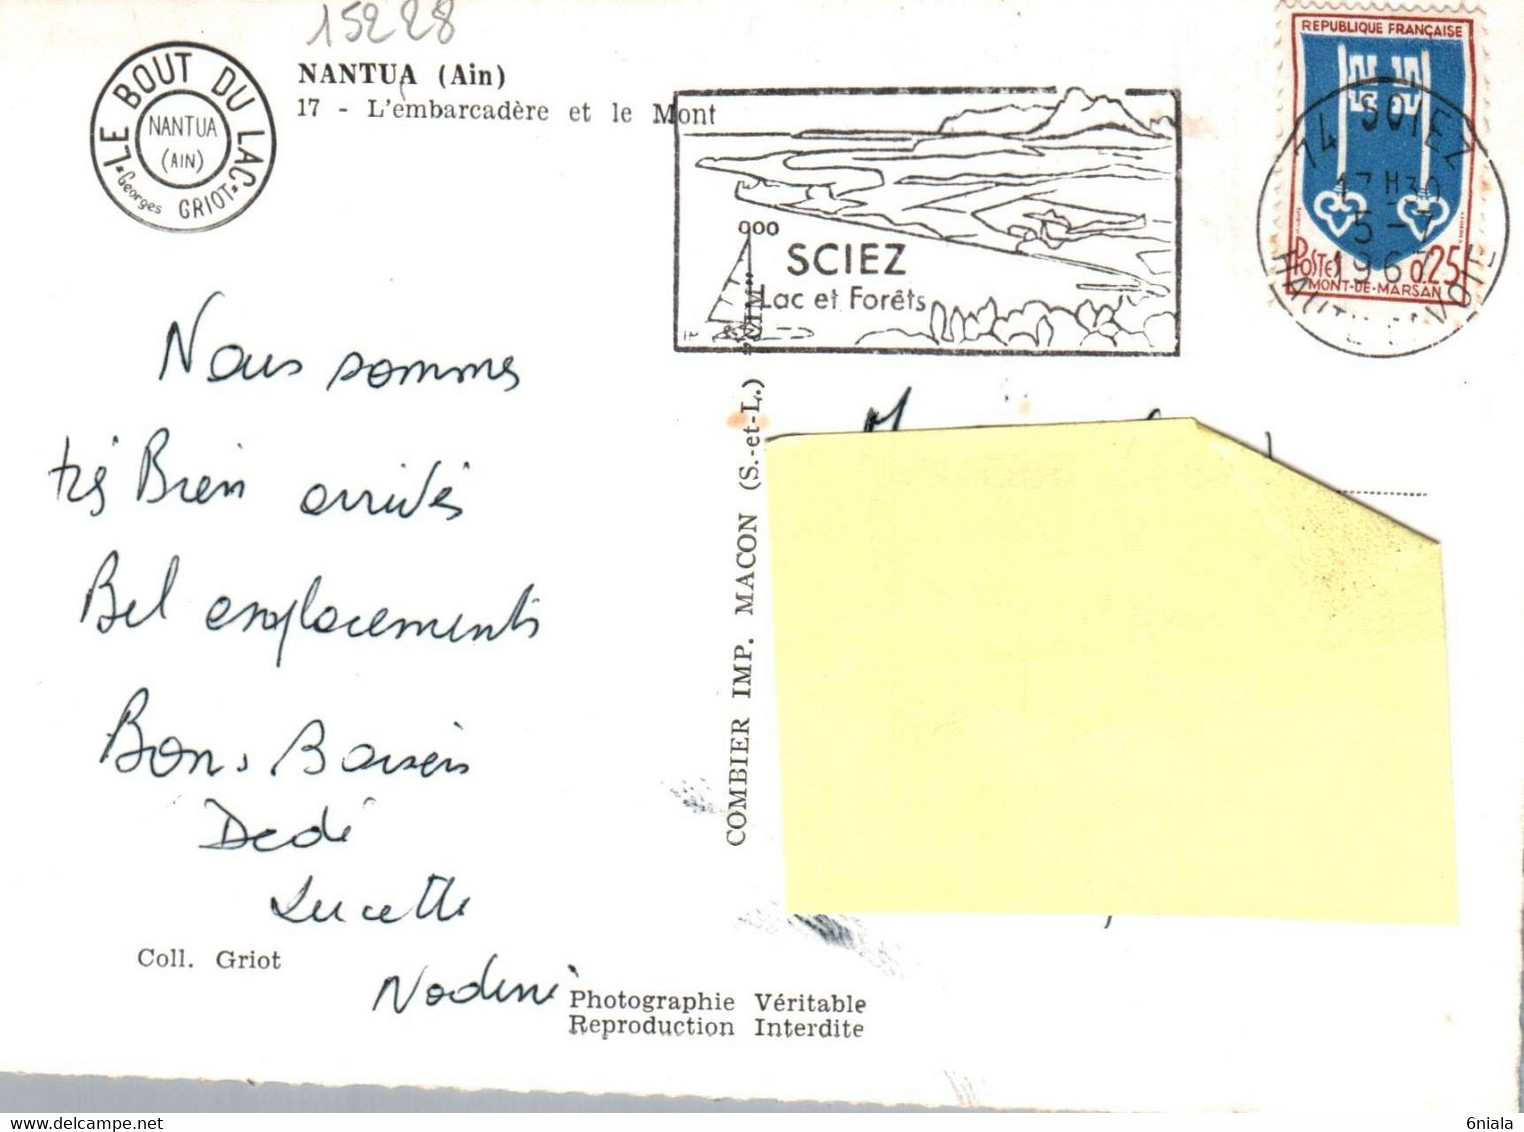 15228
LE BOUT DU LAC
NANTUA
(AIN)
Georges GRIOT
NANTUA (Ain)
17 - L'embarcadère et le Mont
SCIEZ
Lac et Forêts
IM
REPUBLIQUE FRANÇAISE
POSTES 0,25
MONT-DE-MARSAN
74 SCIEZ
17H30
5-7
1967
HAUTE SAVOIE
Nous sommes
très Bien arrivés
Bel emplacements
Bons Baisers
Dedé
Lucette
Nadine
Coll. Griot
Photographie Véritable
Reproduction Interdite
COMBIER IMP. MACON (S.-et-L.) "CIM"
6niala